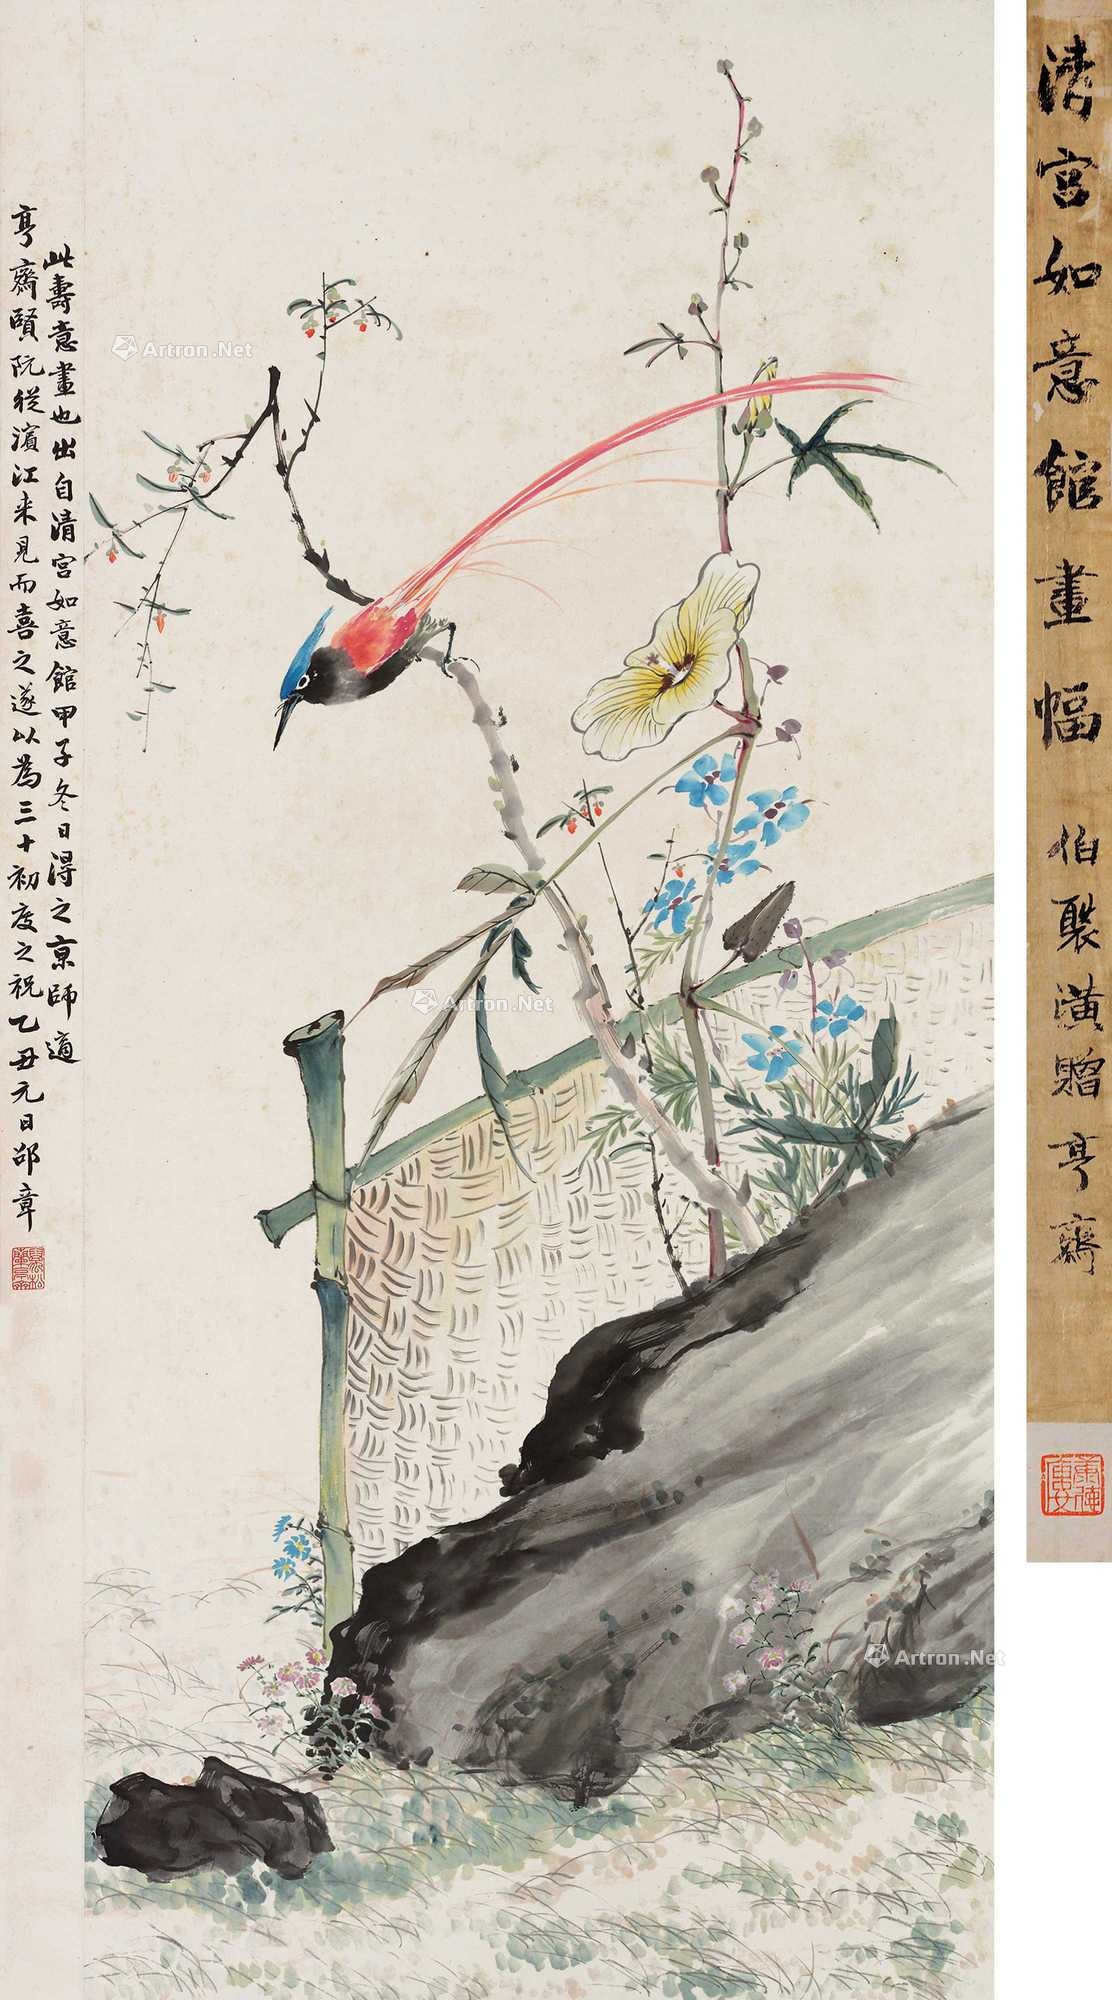 清宮如意館畫幅 伯褧潢贈亨齋
此壽意畫也出自清宮如意館甲子冬日得之京師適
亨齋賢阮從濱江來見而喜之遂以為三十初度之祝乙丑元日邵章
Artron.Net
Artron.Net
Artron.Net